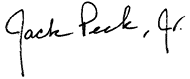 Jack Peck, Jr.